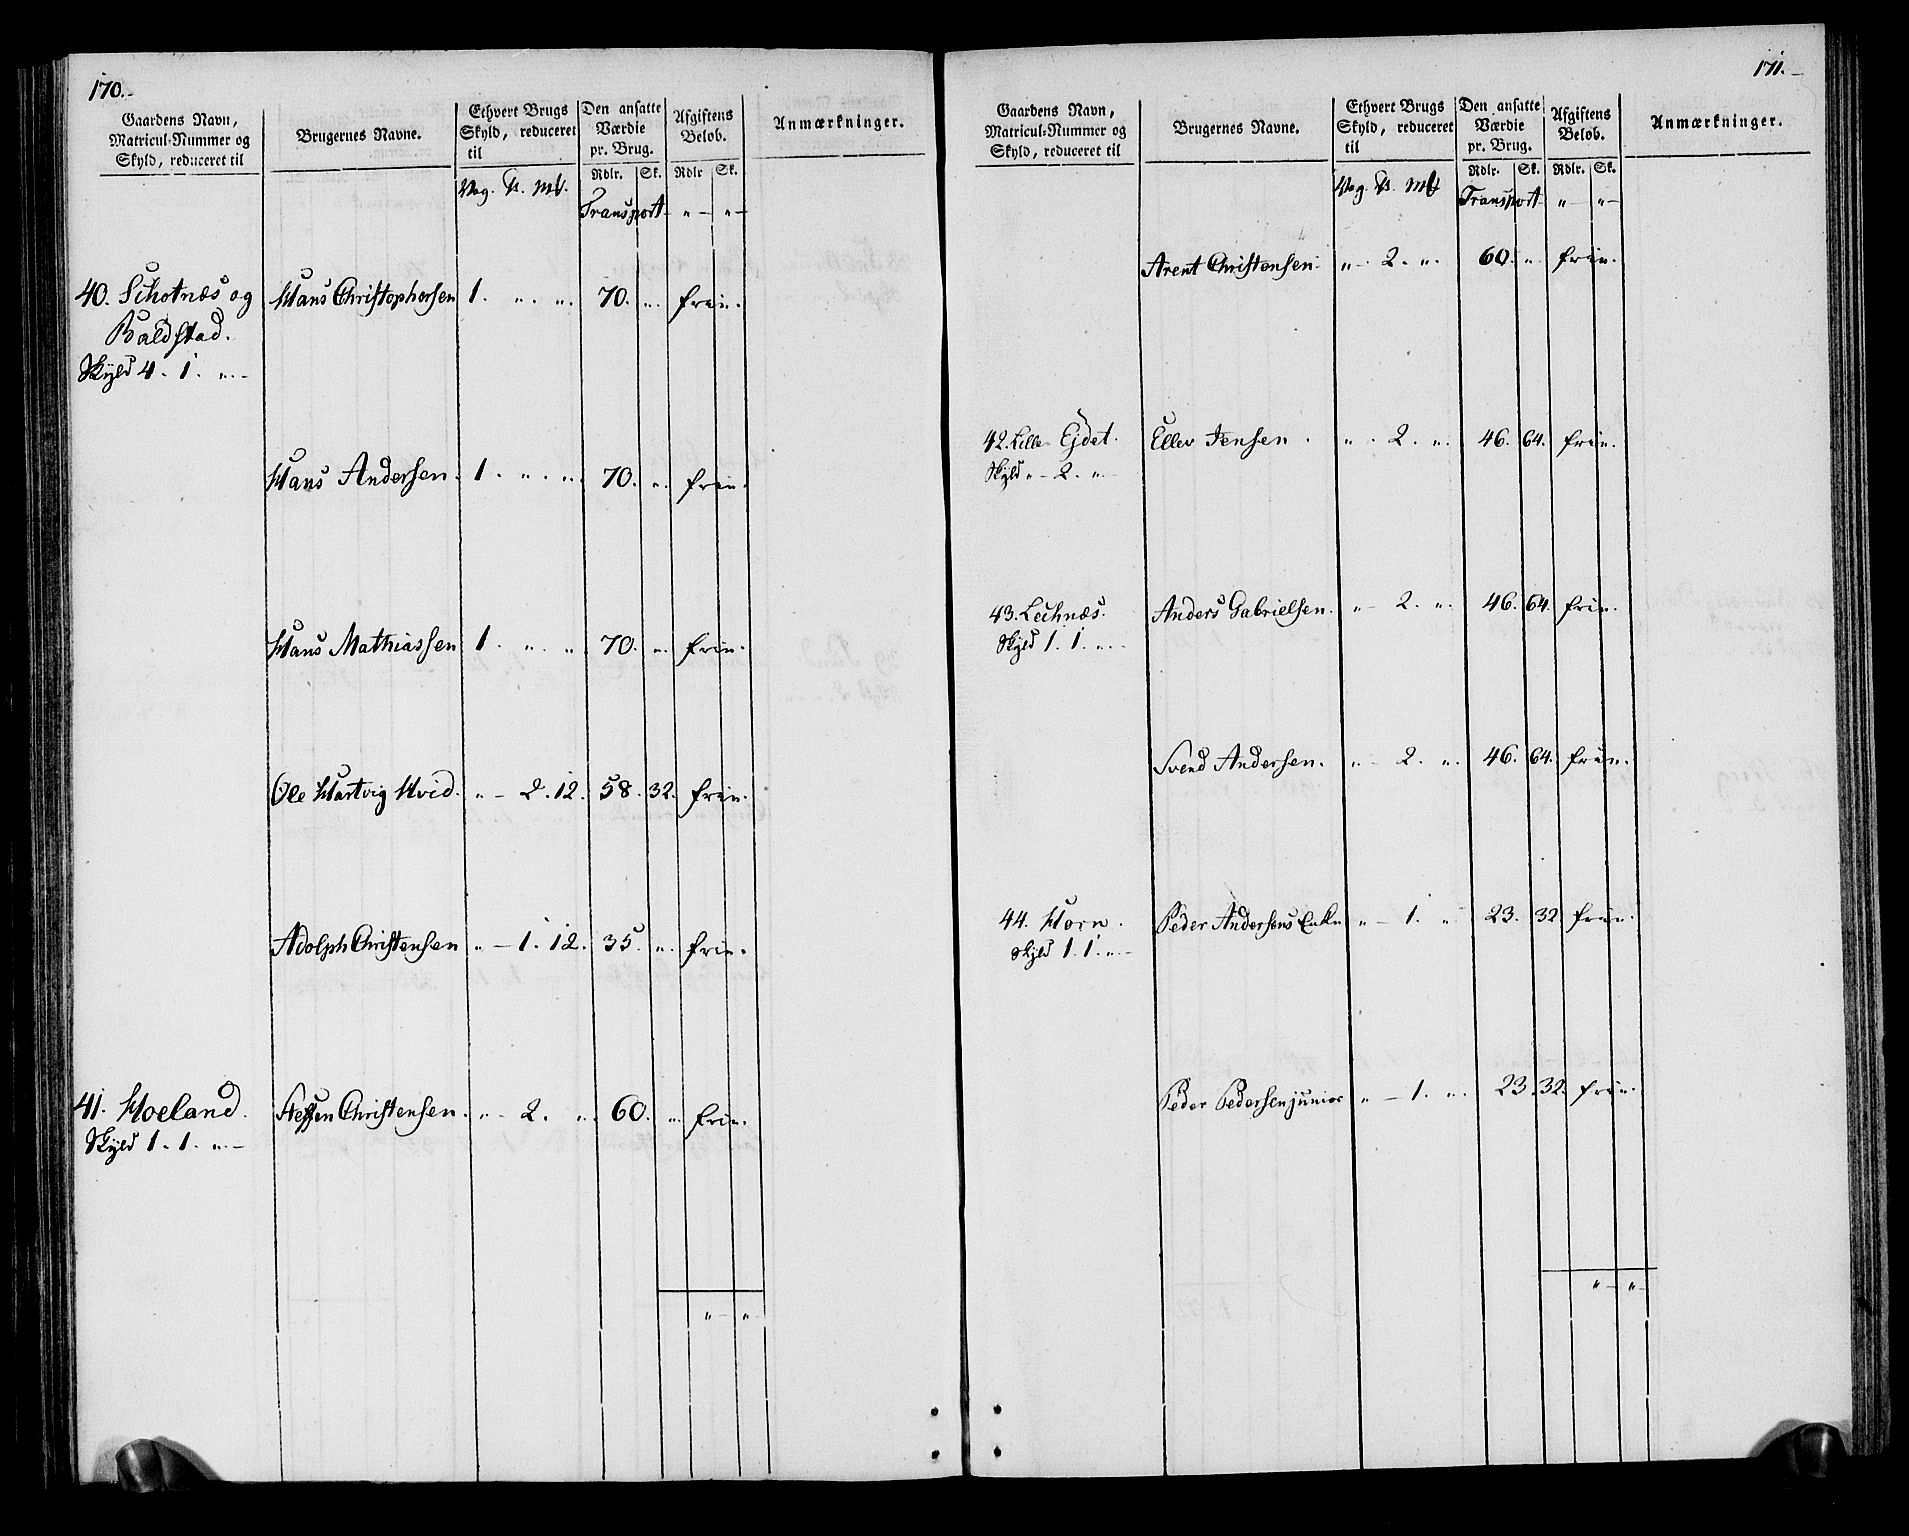 170.
Gaardens Navn, Matricul-Nummer og Skyld, reduceret til
Brugernes Navne.
Ethvert Brugs Skyld, reduceret til
Den ansatte Værdie pr. Brug.
Afgiftens Beløb.
Anmærkninger.
Rdlr. Sk. Rdlr Sk.
Vog. ℔. Mk.
Transport " — " —
40. Schotnæs og Hans Christophersen 1. " ". 70. ". frie.
Baldstad.
Skyld 4. 1. " —
Hans Andersen. 1. " ". 70. ". frie.
Hans Mathiassen 1. " ". 70. ". frie.
Ole Hartvig Hvid. " — 2. 12. 58. 32. frie.
Adolph Christensen " — 1. 12. 35. ". frie.
41. Hoeland. Steffen Christensen. " — 2. ". 60. ". frie.
Skyld 1. 1. " —
" — " —
171.
Gaardens Navn, Matricul-Nummer og Skyld, reduceret til
Brugernes Navne.
Ethvert Brugs Skyld, reduceret til
Den ansatte Værdie pr. Brug.
Afgiftens Beløb.
Anmærkninger.
Rdlr. Sk. Rdlr. Sk.
Vog. ℔. Mk
Transport " — " —
Arent Christensen. " — 2. ". 60. " frie.
42. Lille Ejdet. Ellev Jensen. " . 2. ". 46. 64. frie.
Skyld " — 2. " —
43. Lechnæs. Anders Gabrielsen. " — 2. ". 46. 64. frie.
Skyld 1. 1. " —
Svend Andersen. " — 2. ". 46. 64. frie.
44. Horn. Peder Andersens Enke " — 1. " 23. 32 frie.
Skyld 1. 1. " —
Peder Pedersen junior " — 1. ". 23. 32. frie.
" — " —